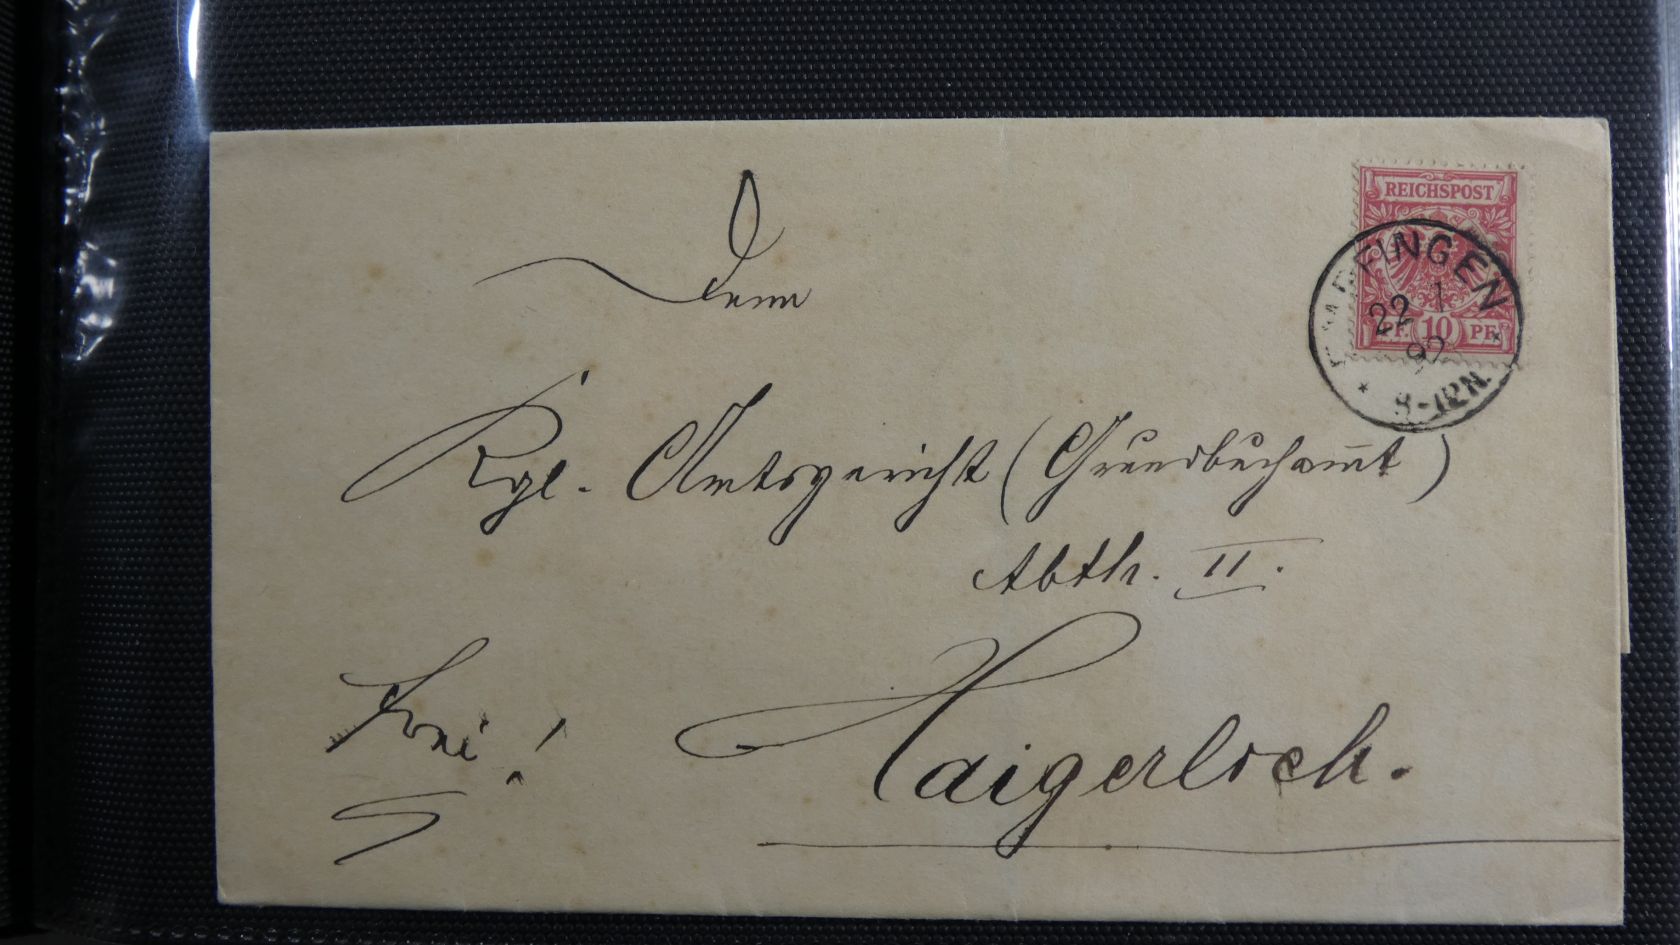 REICHSPOST
PF. 10 PF.
FINGEN
22 1
92
8-12N.
Kgl. Amtsgericht (Grundbuchamt)
Abth. II.
Frei!
Haigerloch.